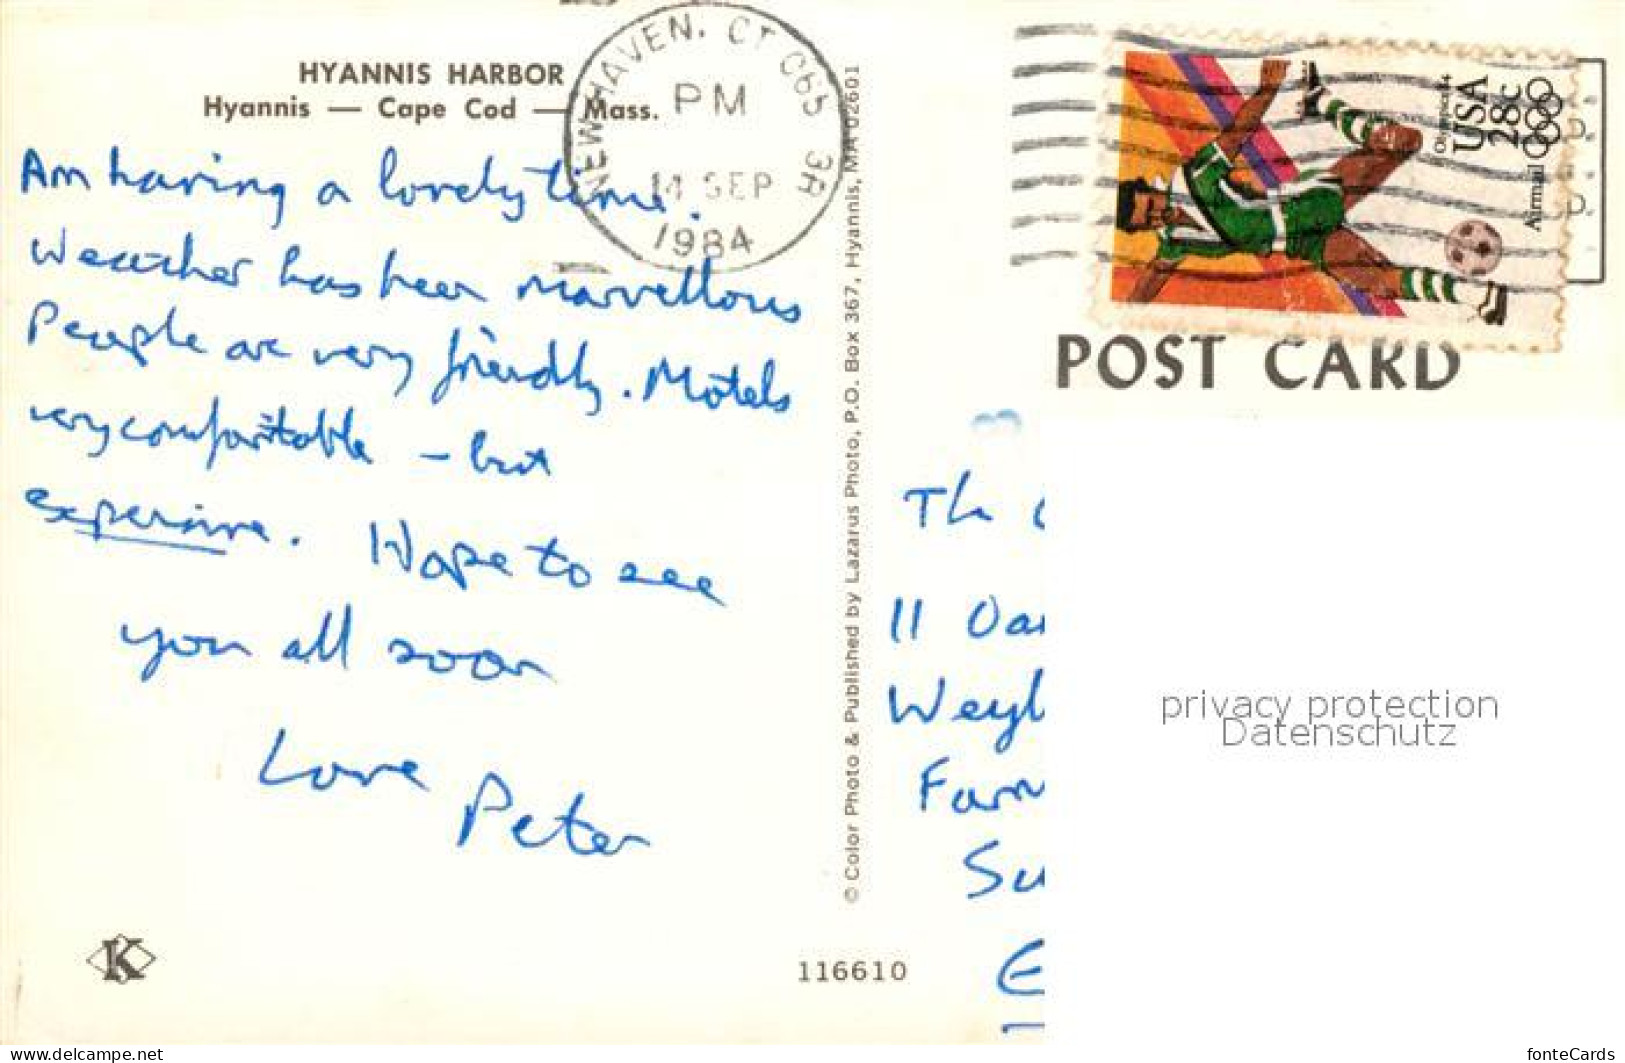 HYANNIS HARBOR
Hyannis — Cape Cod — Mass.
NEW HAVEN, CT 065 3A
PM
14 SEP
1984
Olympics 84
USA
28c
Airmail
POST CARD
Am having a lovely time.
Weather has been marvellous
People are very friendly. Motels
very comfortable – but
expensive. Hope to see
you all soon
Love
Peter
© Color Photo & Published by Lazarus Photo, P.O. Box 367, Hyannis, MA 02601
The
11 Oa
Weyb
Farn
Su
E
privacy protection
Datenschutz
K
116610
www.delcampe.net
fonteCards